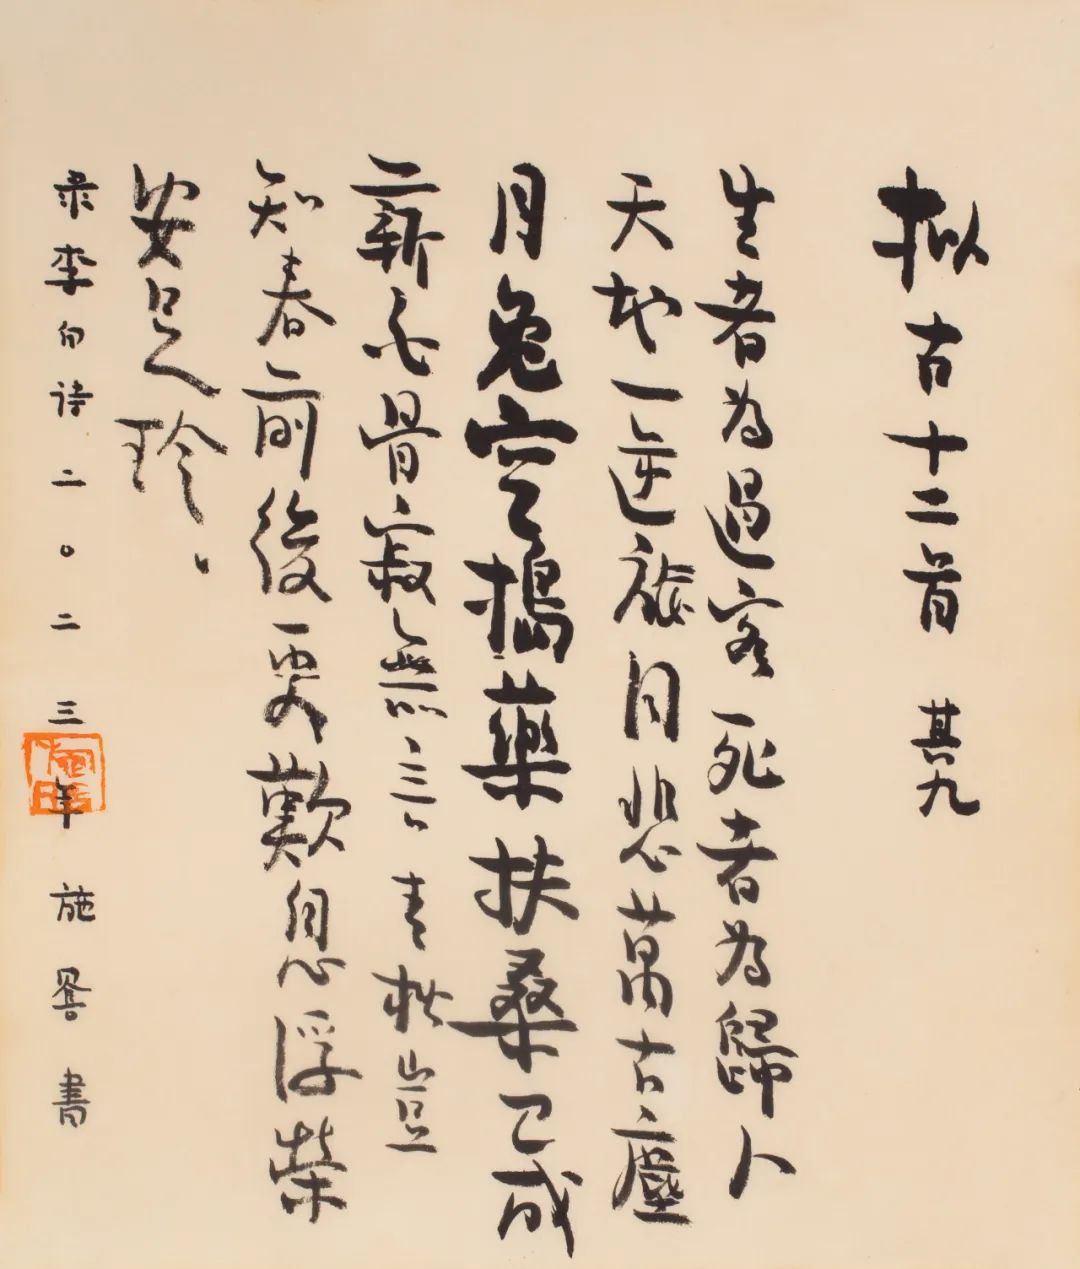 拟古十二首 其九
生者為過客死者為歸人
天地一逆旅同悲萬古塵
月兔空搗藥扶桑已成
薪白骨寂無言青松豈
知春前後更歎息浮荣
安足珍
录李白诗二〇二三年 施 書